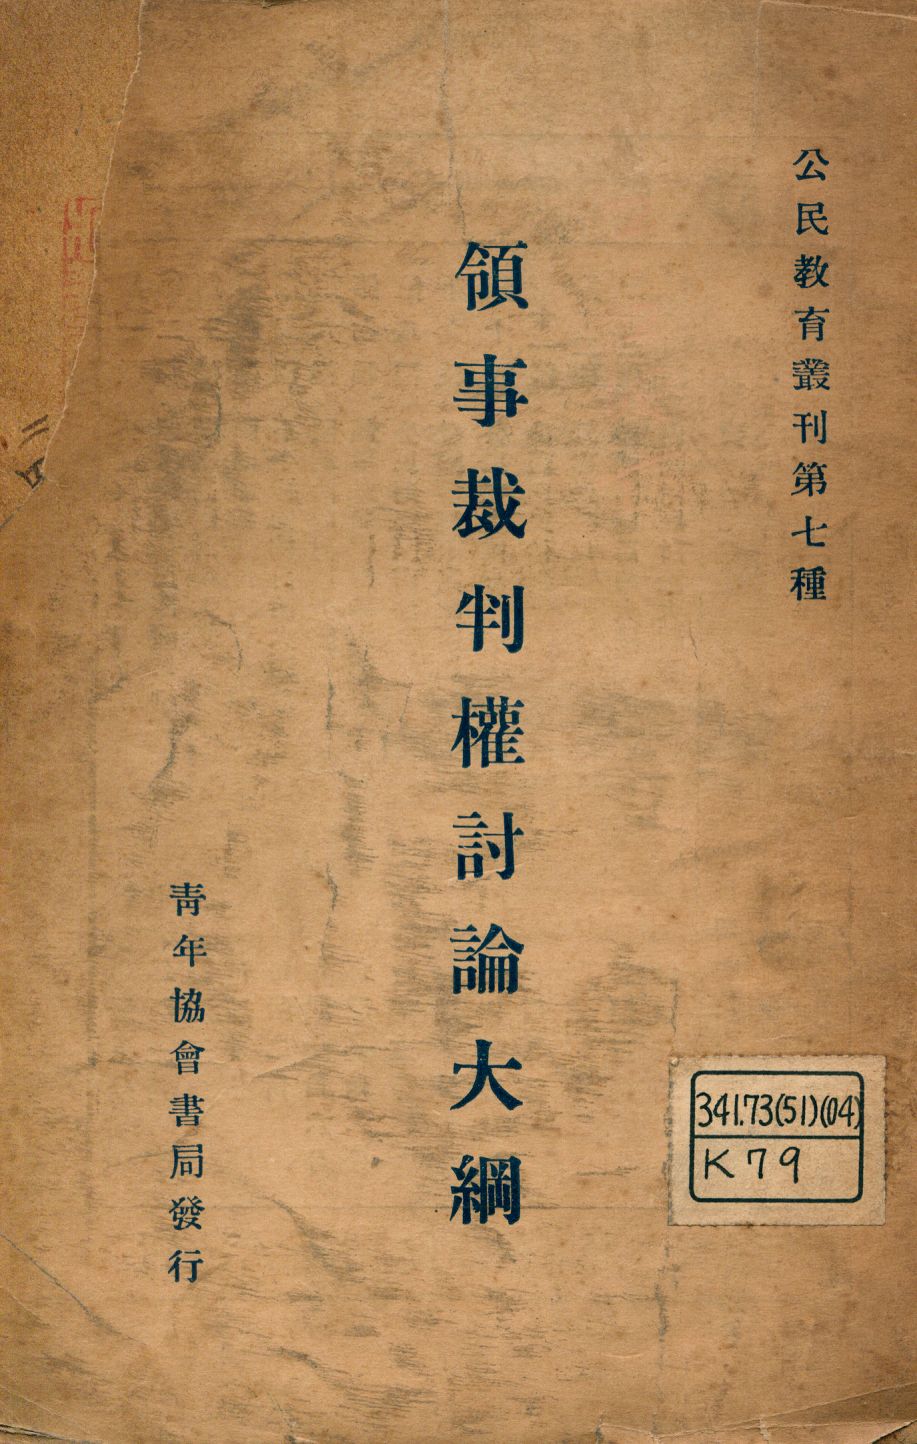 公民教育叢刊第七種
領事裁判權討論大綱
靑年協會書局發行
341.73(51)(04)
K79